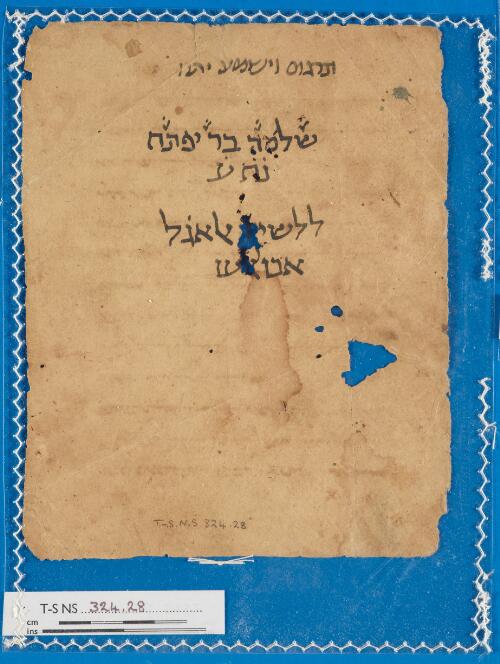 תרגום וישמע יתרו
שלמה בר יפתח
נ׳ ע׳
ללשיך אלאגל
T-S.N.S. 324.28
T-S NS 324.28
cm
ins